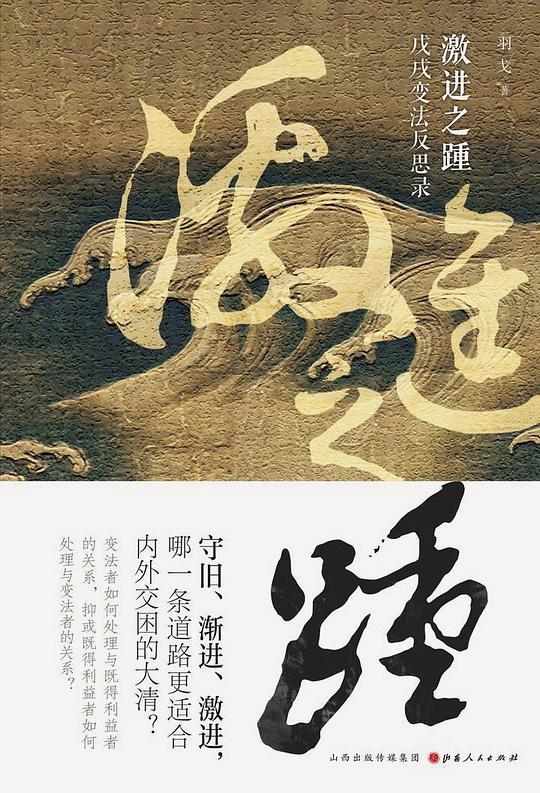 羽戈 著
激进之踵
戊戌变法反思录
激进之
踵
守旧、渐进、激进，
哪一条道路更适合
内外交困的大清？
变法者如何处理与既得利益者
的关系，抑或既得利益者如何
处理与变法者的关系？
山西出版传媒集团 山西人民出版社